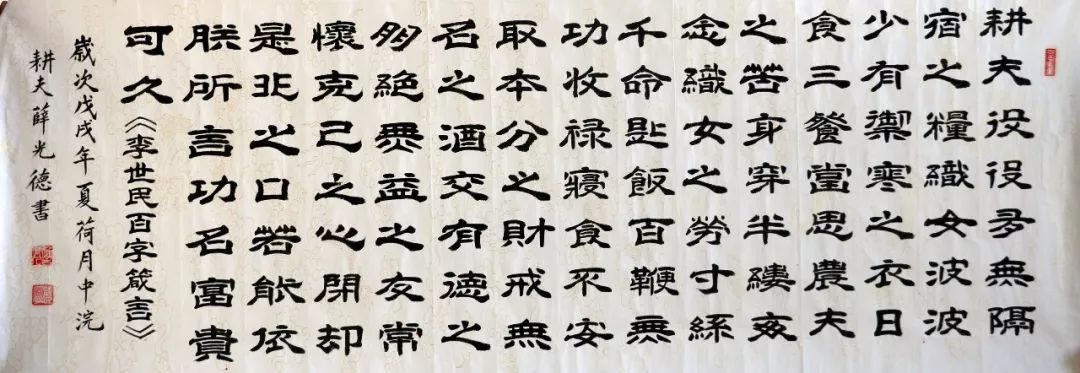 耕夫役役多無隔
宿之糧織女波波
少有禦寒之衣日
食三餐當思農夫
之苦身穿半縷每
念織女之勞寸絲
千命匙飯百鞭無
功收禄寢食不安
取本分之財戒無
名之酒交有德之
朋絕無益之友常
懷克己之心閉却
是非之口若能依
朕所言功名富貴
可久《李世民百字箴言》
歲次戊戌年夏荷月中浣
耕夫薛光德書